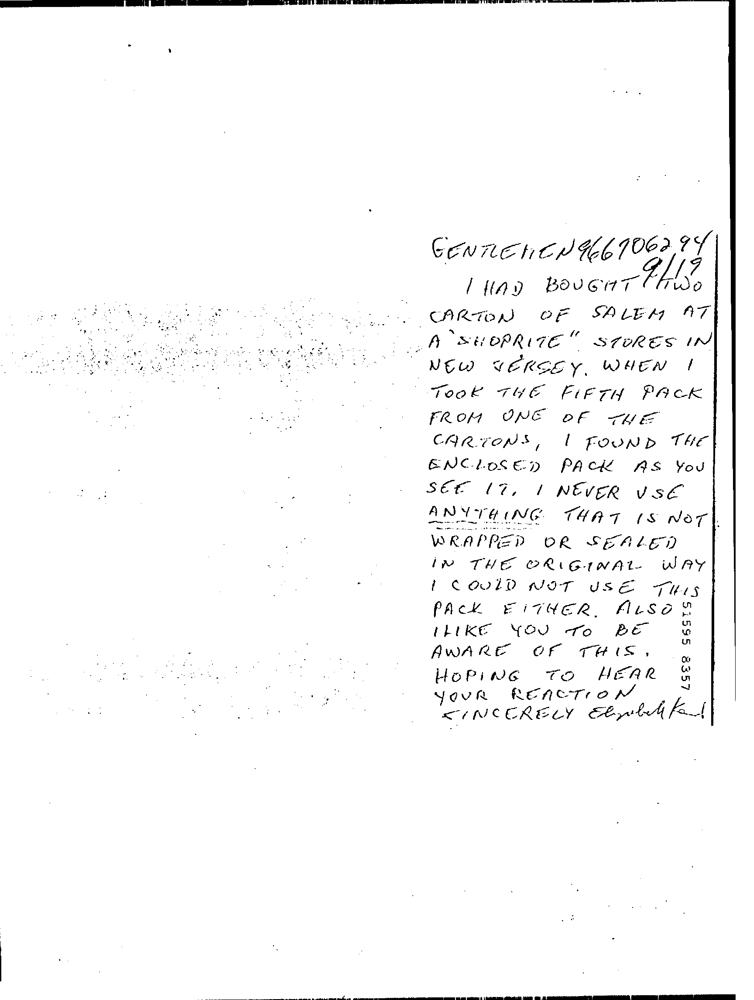 GENTLEMEN 966706294
9/19
I HAD BOUGHT TWO
CARTON OF SALEM AT
A "SHOPRITE" STORES IN
NEW JERSEY. WHEN I
TOOK THE FIFTH PACK
FROM ONE OF THE
CARTONS, I FOUND THE
ENCLOSED PACK AS YOU
SEE IT. I NEVER USE
ANYTHING THAT IS NOT
WRAPPED OR SEALED
IN THE ORIGINAL WAY
I COULD NOT USE THIS
PACK EITHER. ALSO
I LIKE YOU TO BE
AWARE OF THIS.
HOPING TO HEAR
YOUR REACTION
SINCERELY Elizabeth
51595 8357